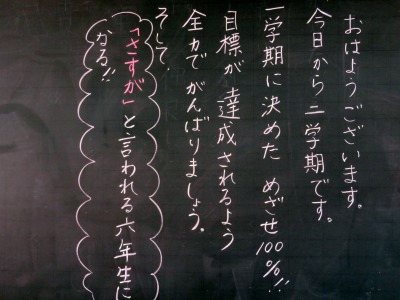 おはようございます。
今日から二学期です。
一学期に決めた めざせ100%!!
目標が 達成されるよう
全力で がんばりましょう。
そして
「さすが」と言われる六年生に
なる!!